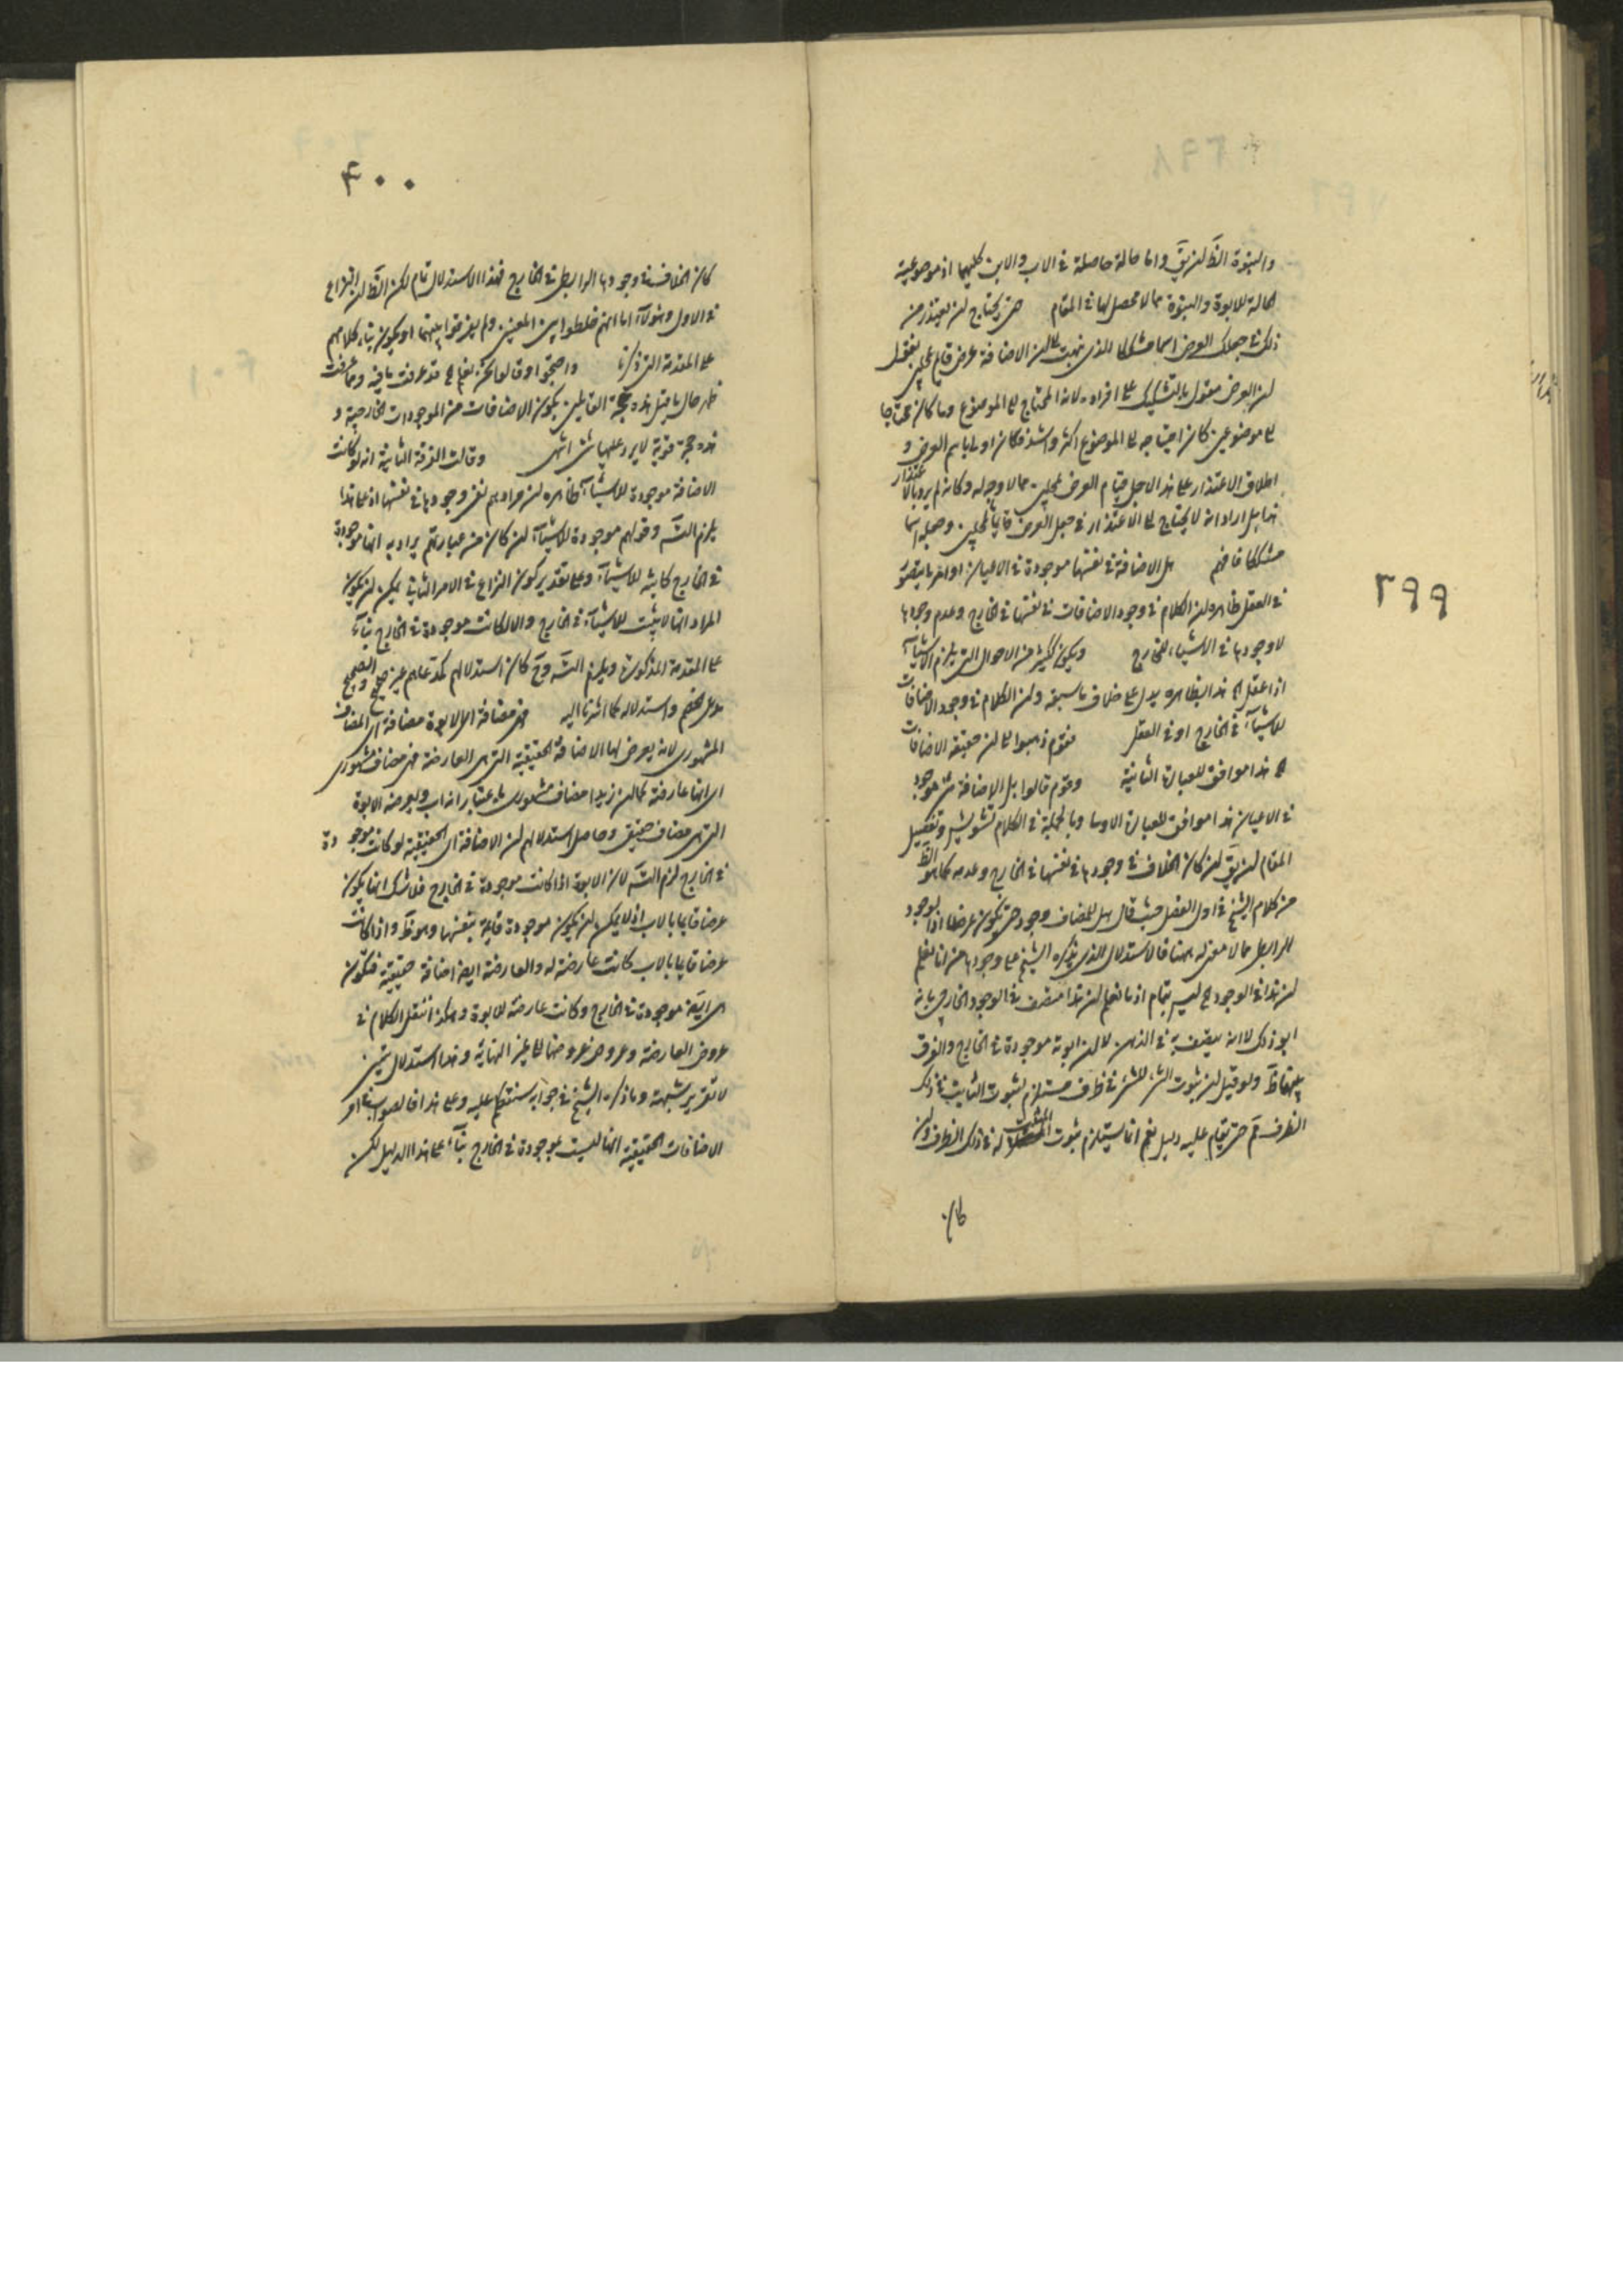 ٣٩٩
والبنوة الظ لن يق واما حالة حاصلة في الاب والابن كليهما اذ موصوعية
الحالة للابوة والبنوة مما لا محصل لها في المقام حتى يحتاج لن يعتذر من
ذلك في جعلك العرض اسما مشككا الذي الى لن الاضافة عرض قائم بمحلين
لن العرض مقول بالتشكيك على افراده لانه المحتاج الى الموضوع وما كان محتاجا
الى موضوعين كان احتياجه الى الموضوع اكثر واشد فكان اولى باسم العرض و
اطلاق الاعتذار على هذا لاجل قيام العرض بمحلين مما لا وجه له وكانه لم يرد بالاعتذار
هذا بل اراد انه لا يحتاج الى الاعتذار في جعل العرض قائما بمحلين وجعله اسما
مشككا فافهم هل الاضافة في نفسها موجودة في الاعيان او امر انما يتصور
في العقل ظاهره لن الكلام في وجود الاضافات في نفسها في الخارج وعدم وجودها
لا وجودها في الاشياء في الخارج ويكون ككثير من الاحوال التي يلزم الاشياء
اذا عقل الخ هذا بظاهره يدل على خلاف ما سبق ولن الكلام في وجود الاضافات
للاشياء في الخارج او في العقل فقوم ذهبوا الى لن حقيقة الاضافات
الخ هذا موافق للعبارة الثانية وقوم قالوا بل الاضافة شئ موجود
في الاعيان هذا موافق للعبارة الاولى وبالجملة في الكلام تشويش وتفصيل
المقام لن يق لن كان الخلاف في وجودها في نفسها في الخارج وعدمه كما هو الظ
من كلام الشيخ في اول الفصل حيث قال هل للمضاف وجود حتى يكون عرضا اذ الوجود
الرابطى مما لا معنى له ههنا فالاستدلال الذي يذكره الشيخ على وجودها من انا نعلم
لن هذا في الوجود الخ ليس بتمام اذ ما نعلم لن هذا متصف في الوجود الخارجى بانه
ابو ذلك لا انه يتصف به في الذهن لا لن ابوته موجودة في الخارج والفرق
بينهما ظ ولو قيل لن ثبوت الشئ للشئ في ظرف مستلزم لثبوت الثابت في ذلك
الظرف فم حتى يقام عليه دليل نعم انما يستلزم ثبوت المثبت له في ذلك الظرف ولن
كان
٤٠٠
كان الخلاف في وجودها الرابطى في الخارج فهذا الاستدلال تام لكن الظ لن النزاع
في الاول وهؤلاء اما انهم خلطوا بين المعنيين ولم يفرقوا بينهما او يكون بناء كلامهم
على المقدمة التي ذكرنا واحتجوا وقالوا نحن نعلم الخ قد عرفت ما فيه ومما عرفت
ظهر حال ما قيل هذه حجة القائلين بكون الاضافات من الموجودات الخارجية و
هذه حجة قوية لا يرد عليها شئ انتهى وقالت الفرقة الثانية انه لو كانت
الاضافة موجودة للاشياء ظاهره لن مرادهم نفى وجودها في نفسها اذ على هذا
يلزم التس وقولهم موجودة للاشياء لن كان من عبارتهم يراد به انها موجودة
في الخارج كائنة للاشياء وعلى تقدير كون النزاع في الامر الثاني يمكن لن يكون
المراد انها لا يثبت للاشياء في الخارج والا لكانت موجودة في الخارج بناء
على المقدمة المذكورة ويلزم التس وح كان استدلالهم كمدعاهم غير صحيح والصحيح
مدعى الخصم واستدلاله كما اشرنا اليه فهى مضافة الى الابوة مضافة اى المضاف
المشهورى لانه يعرض لها الاضافة الحقيقية التي هى العارضة فهى مضاف مشهورى
اى انها عارضة كما لن زيدا مضاف مشهورى باعتبار انه اب ويعرضه الابوة
التي هى مضاف حقيقى وحاصل استدلالهم لن الاضافة اى الحقيقية لو كانت موجودة
في الخارج لزم التس لان الابوة اذا كانت موجودة في الخارج فلا شك انها يكون
عرضا قائما بالاب اذ لا يمكن لن يكون موجودة قائمة بنفسها وهو ظ واذا كانت
عرضا قائما بالاب كانت عارضة له والعارضة ايضا اضافة حقيقية فتكون
هى ايضا موجودة في الخارج وكانت عارضة للابوة وهكذا ننقل الكلام في
عروض العارضة وعروض عروضها الى غير النهاية وهذا استدلال متين
لا تقرير شبهة وما ذكره الشيخ في جوابه سنتكلم عليه وعلى هذا فالصواب
الاضافات الحقيقية انها ليست موجودة في الخارج بناء على هذا الدليل لكن